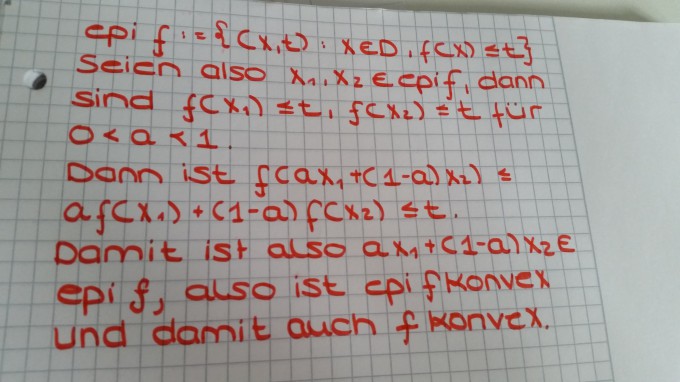 epi f := {(x,t) : x∈D, f(x) ≤ t}
Seien also x₁, x₂ ∈ epi f, dann
sind f(x₁) ≤ t, f(x₂) ≤ t für
0 < a < 1.
Dann ist f(ax₁+(1-a)x₂) ≤
af(x₁)+(1-a)f(x₂) ≤ t.
Damit ist also ax₁+(1-a)x₂∈
epi f, also ist epi f konvex
und damit auch f konvex.